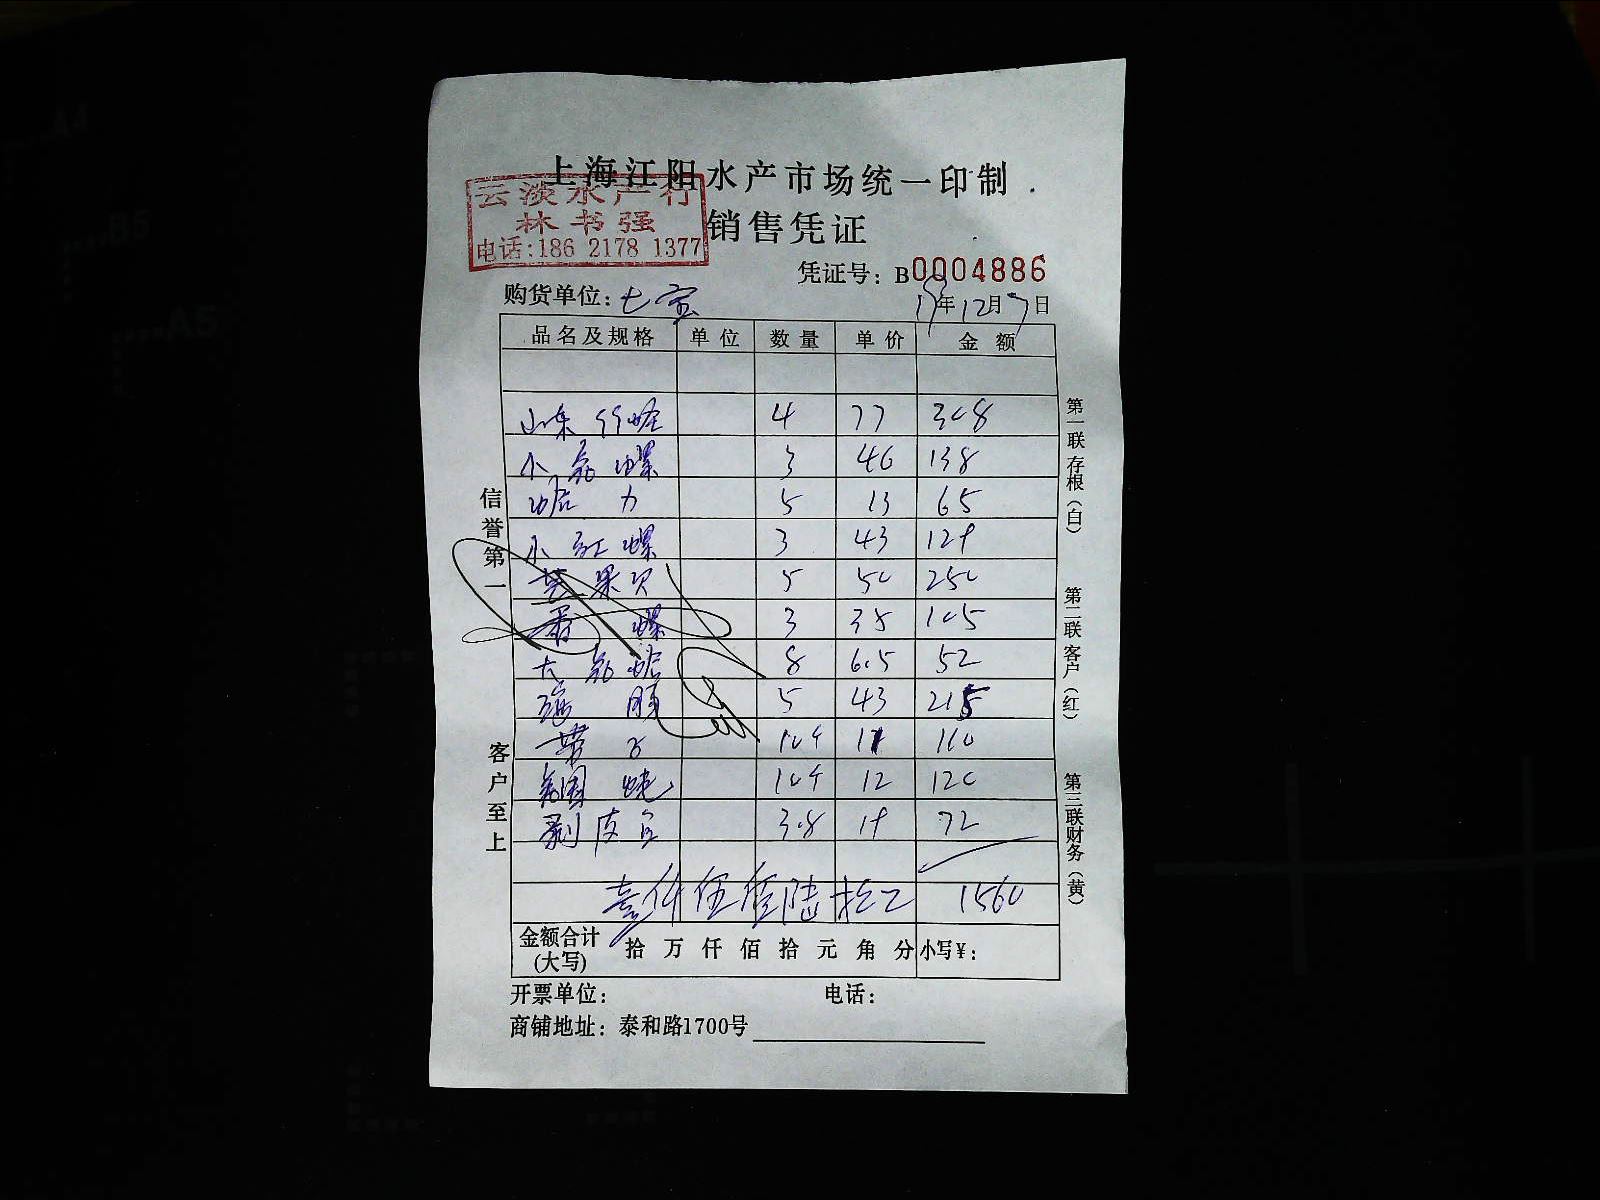 上海江阳水产市场统一印制
云淡水产行
林书强
电话:186 2178 1377
销售凭证
凭证号: B0004886
购货单位: 七宝
19年12月7日
品名及规格 单位 数量 单价 金额
山东竹蛏 4 77 308
小 螺 3 46 138
蛤力 5 13 65
小红螺 3 43 129
苹果贝 5 50 250
香螺 3 35 105
大 蛤 8 6.5 52
5 43 215
带子 10个 11 110
10个 12 120
剥皮鱼 3.8 19 72
壹仟伍佰陆拾元 1560
金额合计(大写) 拾万仟佰拾元角分 小写¥:
开票单位: 电话:
商铺地址: 泰和路1700号
信誉第一
客户至上
第一联 存根(白)
第二联 客户(红)
第三联 财务(黄)